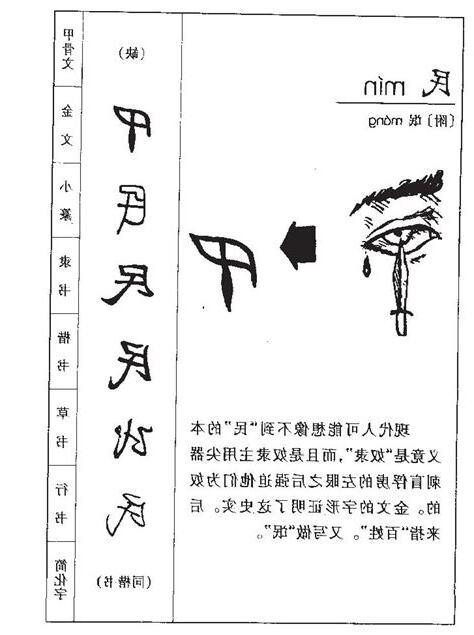 民 mín
〔附〕氓 máng
现代人可能想像不到“民”的本
义竟是“奴隶”，而且是奴隶主用尖器
刺盲俘虏的左眼之后强迫他们为奴
的。金文的字形证明了这史实。后
来指“百姓”。又写做“氓”。
甲骨文
（缺）
金文
小篆
隶书
楷书
草书
行书
简化字
（同楷书）